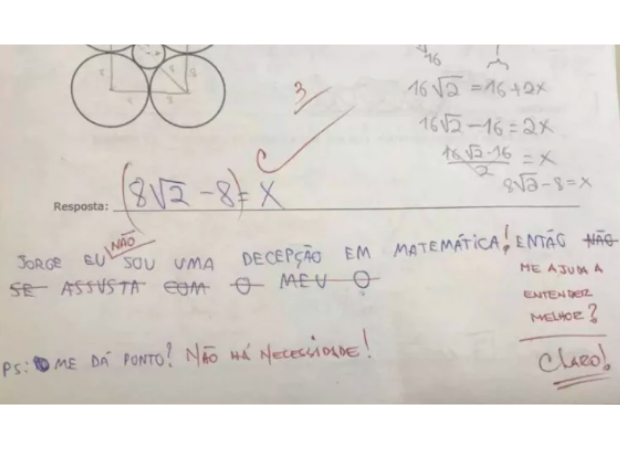 8 8 8 8
16
3
16√2 = 16+2x
16√2 - 16 = 2x
16√2-16 / 2 = x
8√2 - 8 = x
Resposta: (8√2 - 8) = x
NÃO
JORGE EU SOU UMA DECEPÇÃO EM MATEMÁTICA! ENTÃO NÃO
SE ASSUSTA COM O MEU 0
ME AJUDA A
ENTENDER
MELHOR?
CLARO!
PS: ME DÁ PONTO? NÃO HÁ NECESSIDADE!